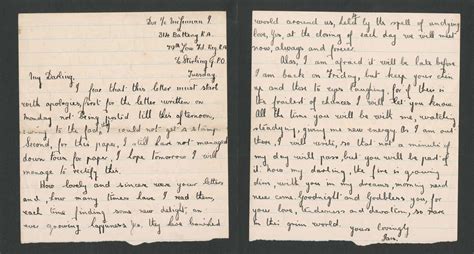 314 Battery R.A.
Tuesday
My Darling,
I fear that this letter must start
with apologies, first for the letter written on
Monday not being posted till this afternoon,
owing to the fact, I could not get a stamp.
Second, for this paper, I still have not managed
down town for paper, I hope tomorrow I will
manage to rectify this.
How lovely and sincere were your letters
and, how many times have I read them,
each time finding some new delight, an
ever growing happiness so, they have banished
world around us, held by the spell of undying
love, for, at the closing of each day we will meet
now, always and forever.
Alas, I am afraid it will be late before
I am back on Friday, but keep your chin
up and those to eyes laughing, for if there is
the frailest of chances I will let you know.
All the time you will be with me, watching
steadying, giving me new energy. Or I am out
then, I will write, so that not a minute of
my day will pass, but you will be part of
it. Now my darling, the fire is growing
dim, with you in my dreams, money said
new come. Goodnight and God bless you, for
your love, tenderness and devotion, so rare
in this grim world.
Yours lovingly